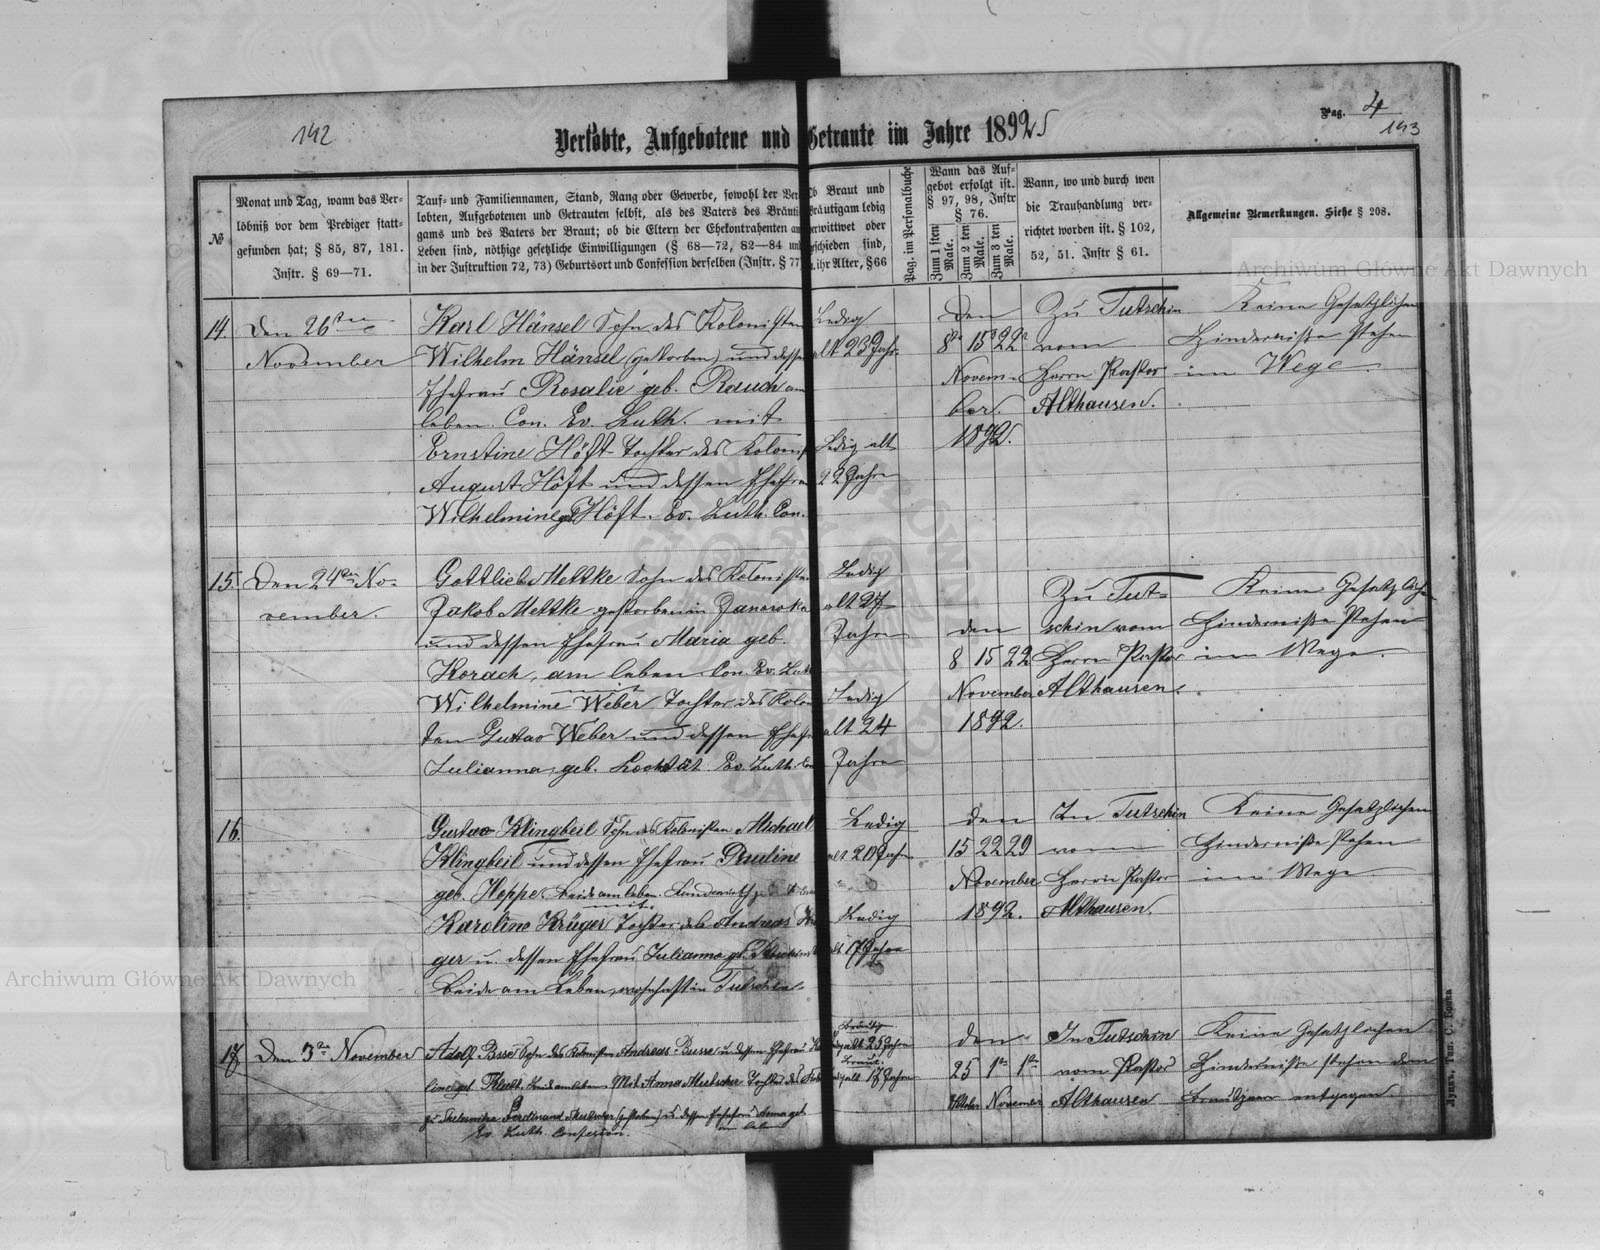 142
Pag. 4
143
Verlobte, Aufgebotene und Getraute im Jahre 1892
№
Monat und Tag, wann das Ver-
löbniß vor dem Prediger statt-
gefunden hat; § 85, 87, 181.
Instr. § 69—71.
Tauf- und Familiennamen, Stand, Rang oder Gewerbe, sowohl der Ver
lobten, Aufgebotenen und Getrauten selbst, als des Vaters des Bräuti
gams und des Vaters der Braut; ob die Eltern der Ehekontrahenten am
Leben sind, nöthige gesetzliche Einwilligungen (§ 68—72, 82—84 und
in der Instruktion 72, 73) Geburtsort und Confession derselben (Instr. § 77)
Ob Braut und
Bräutigam ledig
verwittwet oder
geschieden sind,
u. ihr Alter, § 66
Pag. im Personalbuche
Wann das Auf-
gebot erfolgt ist.
§ 97, 98, Instr
§ 76.
Zum 1 sten Male.
Zum 2 ten Male.
Zum 3 ten Male.
Wann, wo und durch wen
die Trauhandlung ver-
richtet worden ist. § 102,
52, 51. Instr § 61.
Allgemeine Bemerkungen. Siehe § 208.
14. Den 26ten
November
Karl Hänsel Sohn des Kolonisten
Wilhelm Hänsel (gestorben) und dessen
Ehefrau Rosalie geb. Rauch am
leben. Con. Ev. Luth. mit
Ernstine Höft Tochter des Kolonis
August Höft und dessen Ehefrau
Wilhelmine geb Höft. Ev. Luth. Con.
Ledig
alt 23 Jahr.
Ledig alt
22 Jahre
Den
8 15 22
Novem-
ber.
1892.
Zu Tutschin
vom
Herrn Pastor
Althausen.
Keine Gesetzlichen
Hinderniße stehen
im Wege.
15. Den 24ten No-
vember.
Gottlieb Mettke Sohn des Kolonisten
Jakob Mettke gestorben in Janowka
und dessen Ehefrau Maria geb.
Korach, am leben Con. Ev. Luth
Wilhelmine Weber Tochter des Kolon
ten Gustav Weber und dessen Ehefr
Julianna, geb. Ev. Luth. Con
Ledig
alt 27
Jahre
Ledig
alt 24
Jahre
den
8 15 22
November
1892.
Zu Tut-
schin vom
Herrn Pastor
Althausen.
Keine Gesetzliche
Hinderniße stehen
im Wege.
16.
Gustav Klingbeil Sohn des Kolonisten Michael
Klingbeil und dessen Ehefrau Pauline
geb. Heppe beide am leben.
mit.
Karoline Krüger Tochter des Andreas Krü
ger u. dessen Ehefrau Julianna geb.
beide am Leben, wohnhaft in Tutschin
Ledig
alt 20 Jahre
Ledig
alt 17 Jahre
den
15 22 29
November
1892.
In Tutschin
vom
Herrn Pastor
Althausen.
Keine Gesetzlichen
Hinderniße stehen
im Wege
17. Den 3ten November
Adolf Busse Sohn des Kolonisten Andreas Busse u. dessen Ehefrau
geb. beide am leben. Mit Anna Mutscher Tochter des
Ferdinand Mutscher (gestorben) u. dessen Ehefrau Anna geb.
Ev. Luth. Confession. am leben
Bräutig
ledig alt 25 Jahre
Braut.
ledig alt 17 Jahre
den
25 1ten 1ten
Oktober November
In Tutschin
vom Pastor
Althausen
Keine Gesetzlichen
Hinderniße stehen dem
Brautpaar entgegen.
Луцкъ, Тип. С. Бокна
Archiwum Główne Akt Dawnych
Archiwum Główne Akt Dawnych